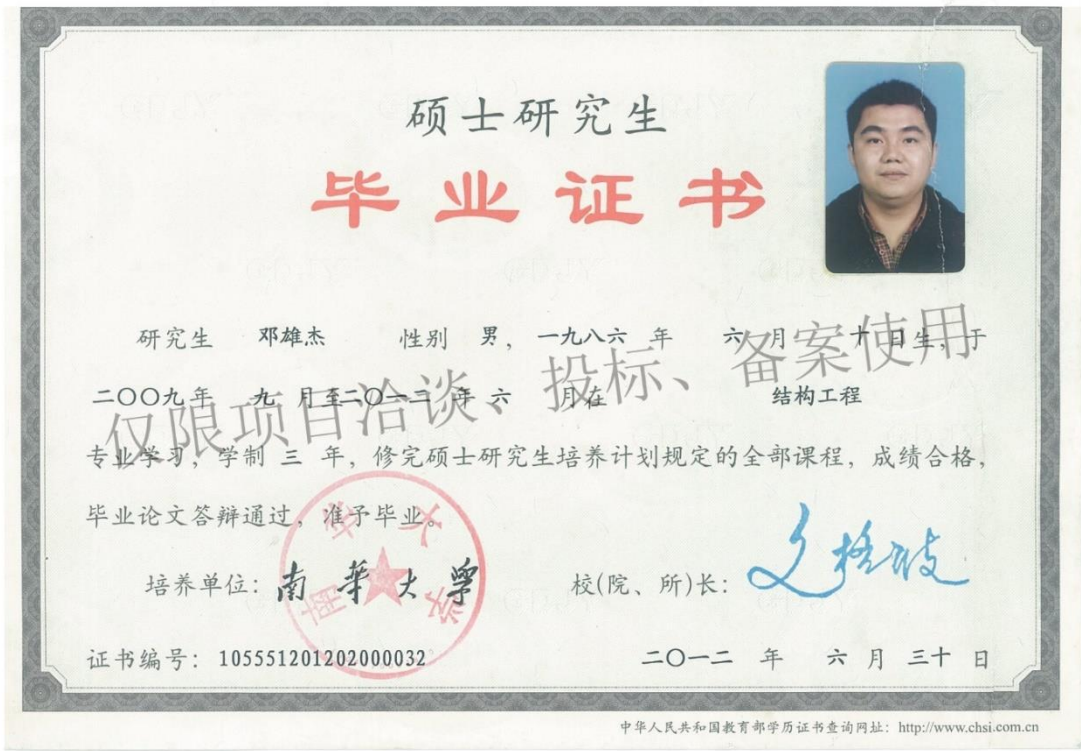 硕士研究生
毕业证书
研究生 邓雄杰 性别 男，一九八六 年 六 月 十 日生，于
二〇〇九年 九 月至二〇一二 年 六 月在 结构工程
仅限项目洽谈、投标、备案使用
专业学习，学制 三 年，修完硕士研究生培养计划规定的全部课程，成绩合格，
毕业论文答辩通过，准予毕业。
南华大学
培养单位：南華大學 校(院、所)长：
证书编号：105551201202000032 二〇一二 年 六 月 三十 日
中华人民共和国教育部学历证书查询网址：http://www.chsi.com.cn